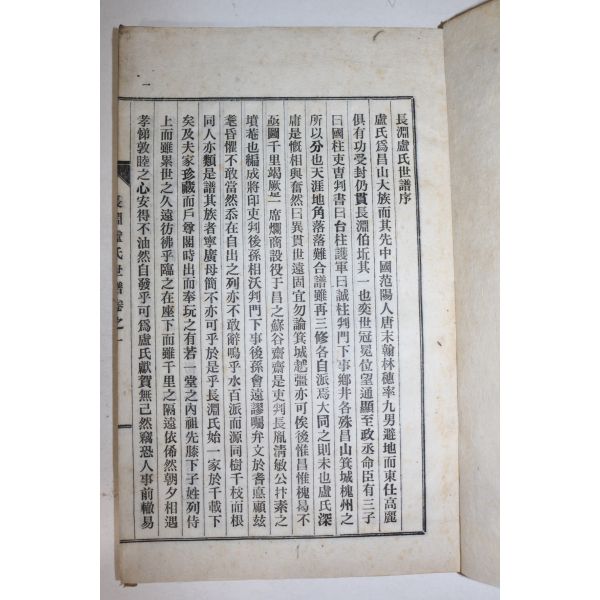 長淵盧氏世譜序
盧氏爲昌山大族而其先中國范陽人唐末翰林穗率九男避地而東仕高麗
俱有功受封仍貫長淵伯坵其一也奕世冠冕位望通顯至政丞命臣有三子
曰國柱吏曺判書曰台柱護軍曰誠柱判門下事鄕井各殊昌山箕城槐州之
所以分也天涯地角落落難合譜雖再三修各自派焉大同之則未也盧氏深
庸是慨相興奮然曰異貫世遠固宜勿論箕城越彊亦可俟後惟昌惟槐曷不
亟圖千里竭厥是一席爛商設役于昌之蘇谷齋齋是吏判長胤淸敏公抃素之
墳菴也編成將印吏判後孫相沃判門下事後孫會遠謬囑弁文於耆悳顧玆
耄昏懼不敢當然忝在自出之列亦不敢辭嗚乎水百派而源同樹千枝而根
同人亦類是譜其族者寧廣毋簡不亦可乎於是乎長淵氏始一家於千載下
矣及夫家珍藏而戶尊閣時出而奉玩之有若一堂之內祖先膝下子姓列侍
上而雖累世之久遠彷彿乎臨之在座下而雖千里之隔遠依俙然朝夕相遇
孝悌敦睦之心安得不油然自發乎可爲盧氏獻賀無已然竊恐人事前轍易
長淵盧氏世譜卷之一
一